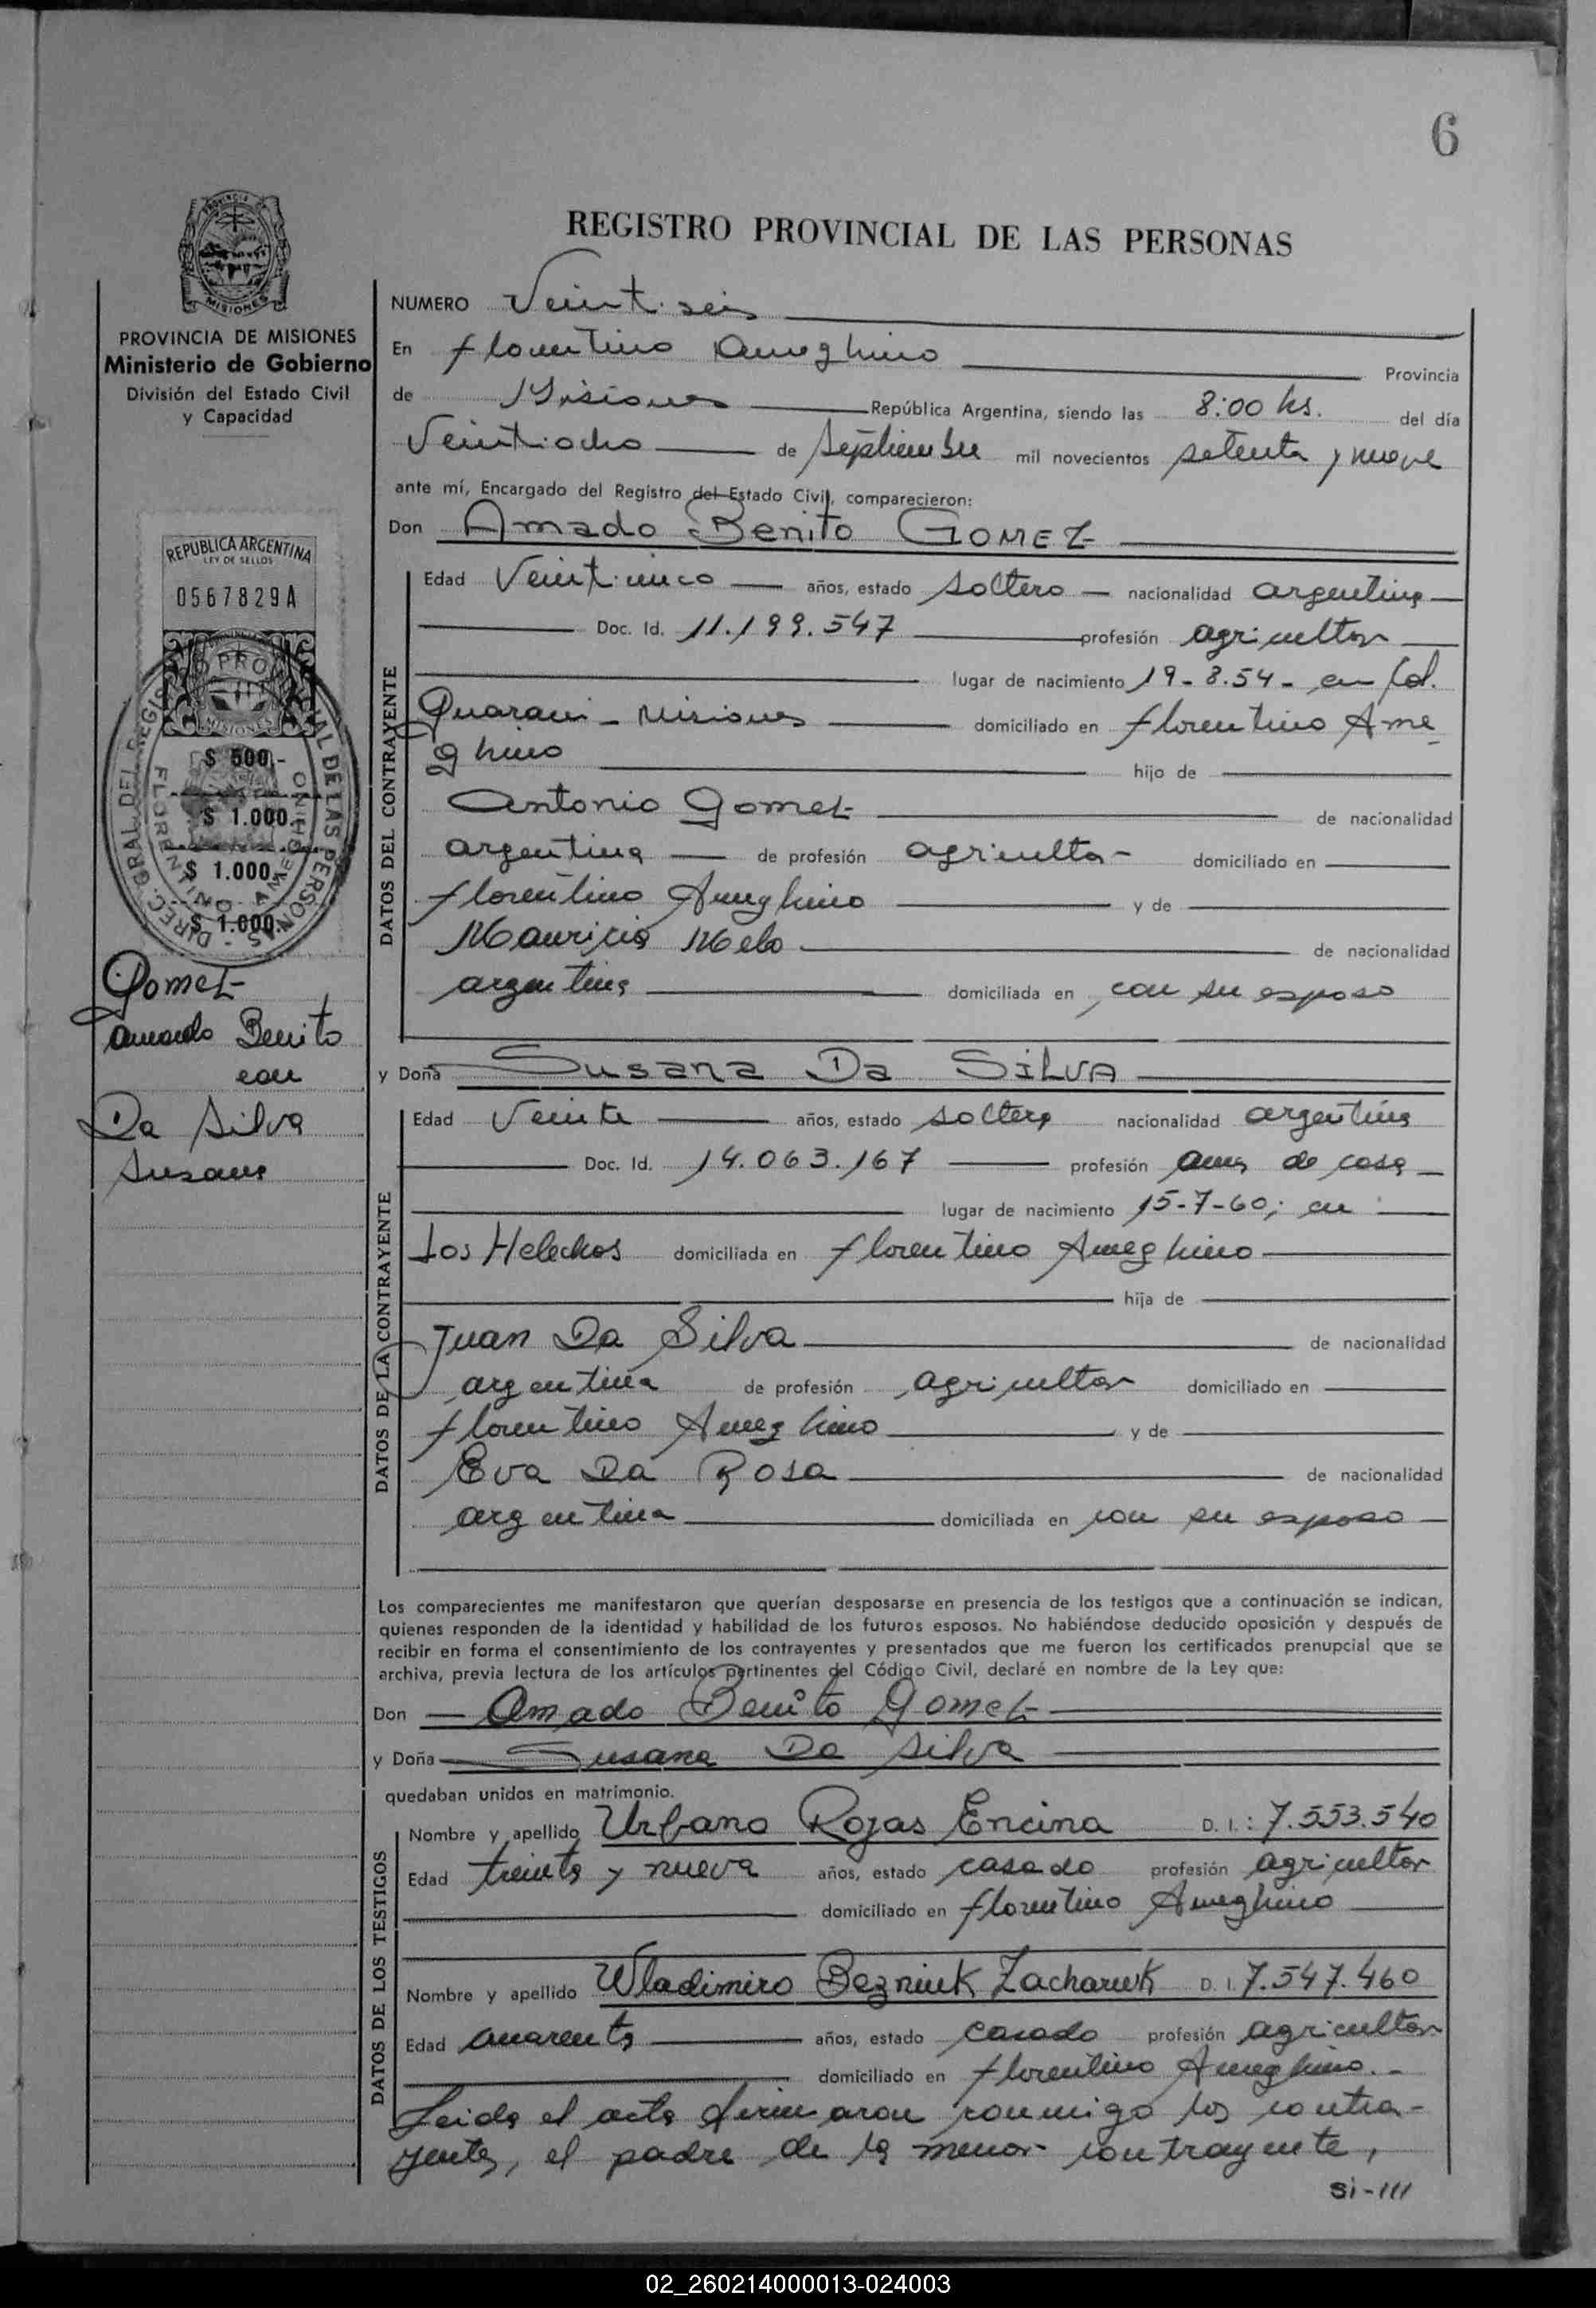 6
REGISTRO PROVINCIAL DE LAS PERSONAS
PROVINCIA
MISIONES
PROVINCIA DE MISIONES
Ministerio de Gobierno
División del Estado Civil
y Capacidad
REPUBLICA ARGENTINA
LEY DE SELLOS
0567829A
MISIONES
$ 500.-
$ 1.000.
$ 1.000.
$ 1.000.
DIREC. GRAL DEL REGISTRO PROVINCIAL DE LAS PERSONAS -
FLORENTINO AMEGHINO
Gomez
Amado Benito
con
Da Silva
Susana
NUMERO Veintiseis
En Florentino Ameghino Provincia
de Misiones República Argentina, siendo las 8:00 hs. del día
Veintiocho de Septiembre mil novecientos setenta y nueve
ante mí, Encargado del Registro del Estado Civil, comparecieron:
Don Amado Benito GOMEZ
DATOS DEL CONTRAYENTE
Edad Veinticinco años, estado soltero nacionalidad argentina
Doc. Id. 11.199.547 profesión agricultor
lugar de nacimiento 19-8.54- en Col.
Guarani - Misiones domiciliado en Florentino Ame
ghino hijo de
Antonio Gomez de nacionalidad
argentina de profesión agricultor domiciliado en
Florentino Ameghino y de
Mauricia Melo de nacionalidad
argentina domiciliada en con su esposo
y Doña Susana Da SILVA
DATOS DE LA CONTRAYENTE
Edad Veinte años, estado soltera nacionalidad argentina
Doc. Id. 14.063.167 profesión ama de casa
lugar de nacimiento 15-7-60; en
Los Helechos domiciliada en Florentino Ameghino
hija de
Juan Da Silva de nacionalidad
argentina de profesión agricultor domiciliado en
Florentino Ameghino y de
Eva Da Rosa de nacionalidad
argentina domiciliada en con su esposo
Los comparecientes me manifestaron que querían desposarse en presencia de los testigos que a continuación se indican,
quienes responden de la identidad y habilidad de los futuros esposos. No habiéndose deducido oposición y después de
recibir en forma el consentimiento de los contrayentes y presentados que me fueron los certificados prenupcial que se
archiva, previa lectura de los artículos pertinentes del Código Civil, declaré en nombre de la Ley que:
Don Amado Benito Gomez
y Doña Susana Da Silva
quedaban unidos en matrimonio.
DATOS DE LOS TESTIGOS
Nombre y apellido Urbano Rojas Encina D. I.: 7.553.540
Edad treinta y nueve años, estado casado profesión agricultor
domiciliado en Florentino Ameghino
Nombre y apellido Wladimiro Bezniuk Zacharuk D. I. 7.547.460
Edad cuarenta años, estado casado profesión agricultor
domiciliado en Florentino Ameghino.-
Leida el acta firmaron conmigo los contra-
yentes, el padre de la menor contrayente,
Si-111
02_260214000013-024003